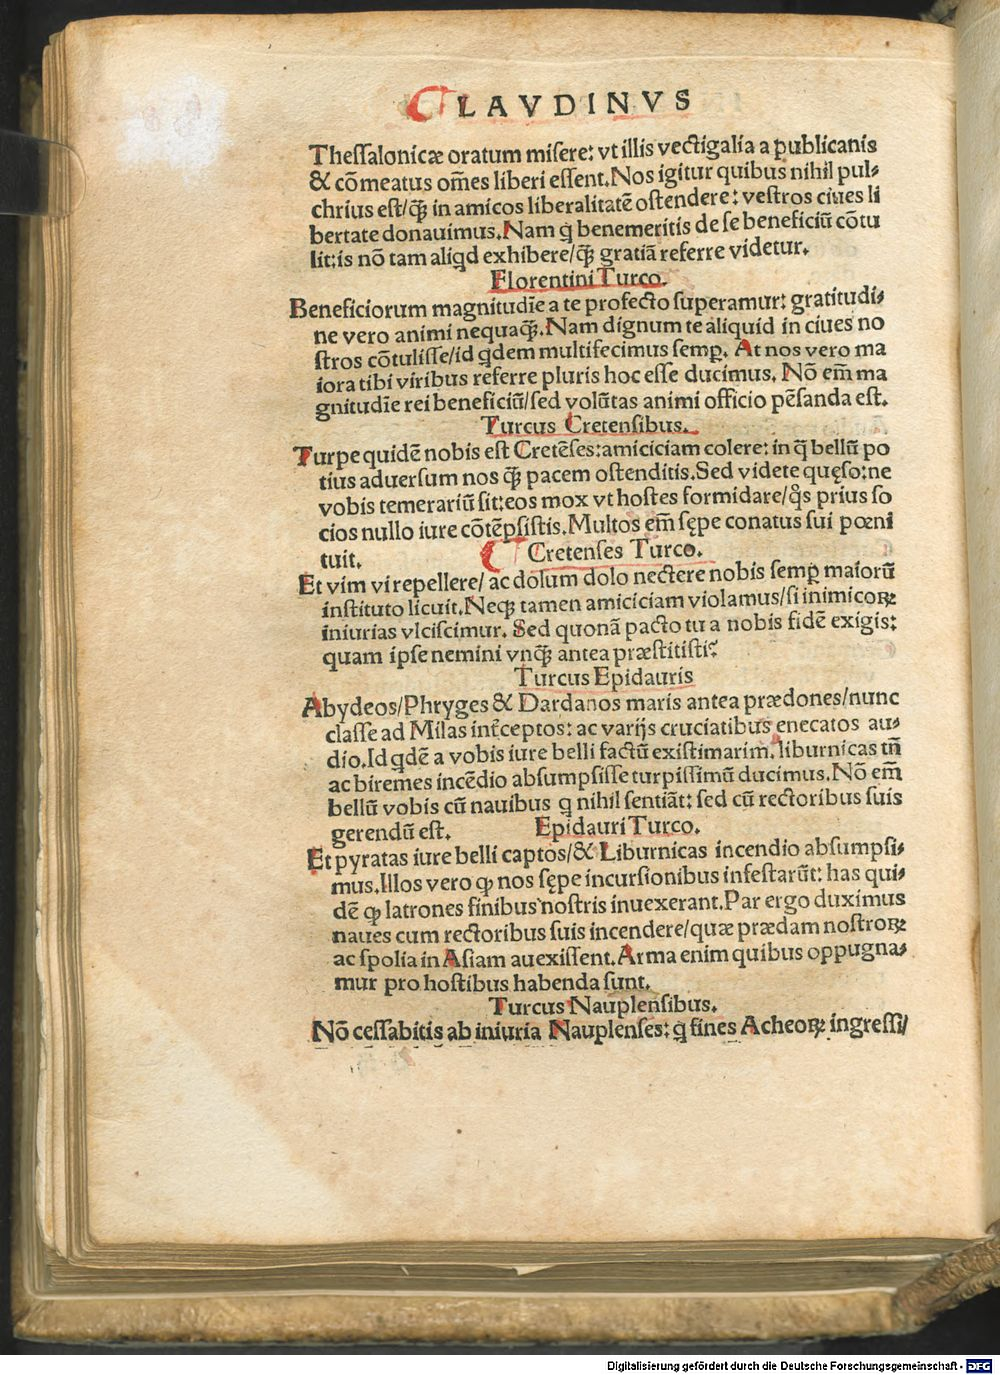 LAVDINVS
Theſſalonicæ oratum miſere: vt illis vectigalia a publicanis
& cōmeatus om̄es liberi eſſent. Nos igitur quibus nihil pul⸗
chrius eſt/ꝙ̄ in amicos liberalitatē oſtendere: veſtros ciues li
bertate donauimus. Nam ꝗ benemeritis de ſe beneficiū cōtu
lit: is nō tam aliꝗd exhibere/ꝙ̄ gratiā referre videtur.
Florentini Turco.
Beneficiorum magnitudīe a te profecto ſuperamur: gratitudi⸗
ne vero animi nequaꝙ̄. Nam dignum te aliquid in ciues no
ſtros cōtuliſſe/id ꝗdem multifecimus ſemꝑ. At nos vero ma
iora tibi viribus referre pluris hoc eſſe ducimus. Nō em̄ ma
gnitudīe rei beneficiū/ſed volūtas animi officio pēſanda eſt.
Turcus Cretenſibus.
Turpe quidē nobis eſt Cretēſes: amiciciam colere: in ꝗ̄ bellū po
tius aduerſum nos ꝙ̄ pacem oſtenditis. Sed videte quęſo: ne
vobis temerariū ſit: eos mox vt hoſtes formidare/ꝗ̊s prius ſo
cios nullo iure cōtēpſiſtis. Multos em̄ ſępe conatus ſui pœni
tuit.
Cretenſes Turco.
Et vim vi repellere/ ac dolum dolo nectere nobis ſemꝑ maiorū
inſtituto licuit. Neqꝫ tamen amiciciam violamus/ſi inimicoꝝ
iniurias vlciſcimur. Sed quonā pacto tu a nobis fidē exigis:
quam ipſe nemini vnꝙ̄ antea præſtitiſti?
Turcus Epidauris
Abydeos/Phryges & Dardanos maris antea prædones/nunc
claſſe ad Milas int̄ceptos: ac varijs cruciatibus enecatos au⸗
dio. Id ꝗdē a vobis iure belli factū exiſtimarim. liburnicas tn̄
ac biremes incēdio abſumpſiſſe turpiſſimū ducimus. Nō em̄
bellū vobis cū nauibus ꝗ nihil ſentiāt: ſed cū rectoribus ſuis
gerendū eſt.
Epidauri Turco.
Et pyratas iure belli captos/& Liburnicas incendio abſumpſi⸗
mus. Illos vero ꝙ nos ſępe incurſionibus infeſtarūt: has qui⸗
dē ꝙ latrones finibus noſtris inuexerant. Par ergo duximus
naues cum rectoribus ſuis incendere/quæ prædam noſtroꝝ
ac ſpolia in Aſiam auexiſſent. Arma enim quibus oppugna⸗
mur pro hoſtibus habenda ſunt.
Turcus Nauplenſibus.
Nō ceſſabitis ab iniuria Nauplenſes: ꝗ fines Acheoꝝ ingreſſi/
Digitalisierung gefördert durch die Deutsche Forschungsgemeinschaft - DFG